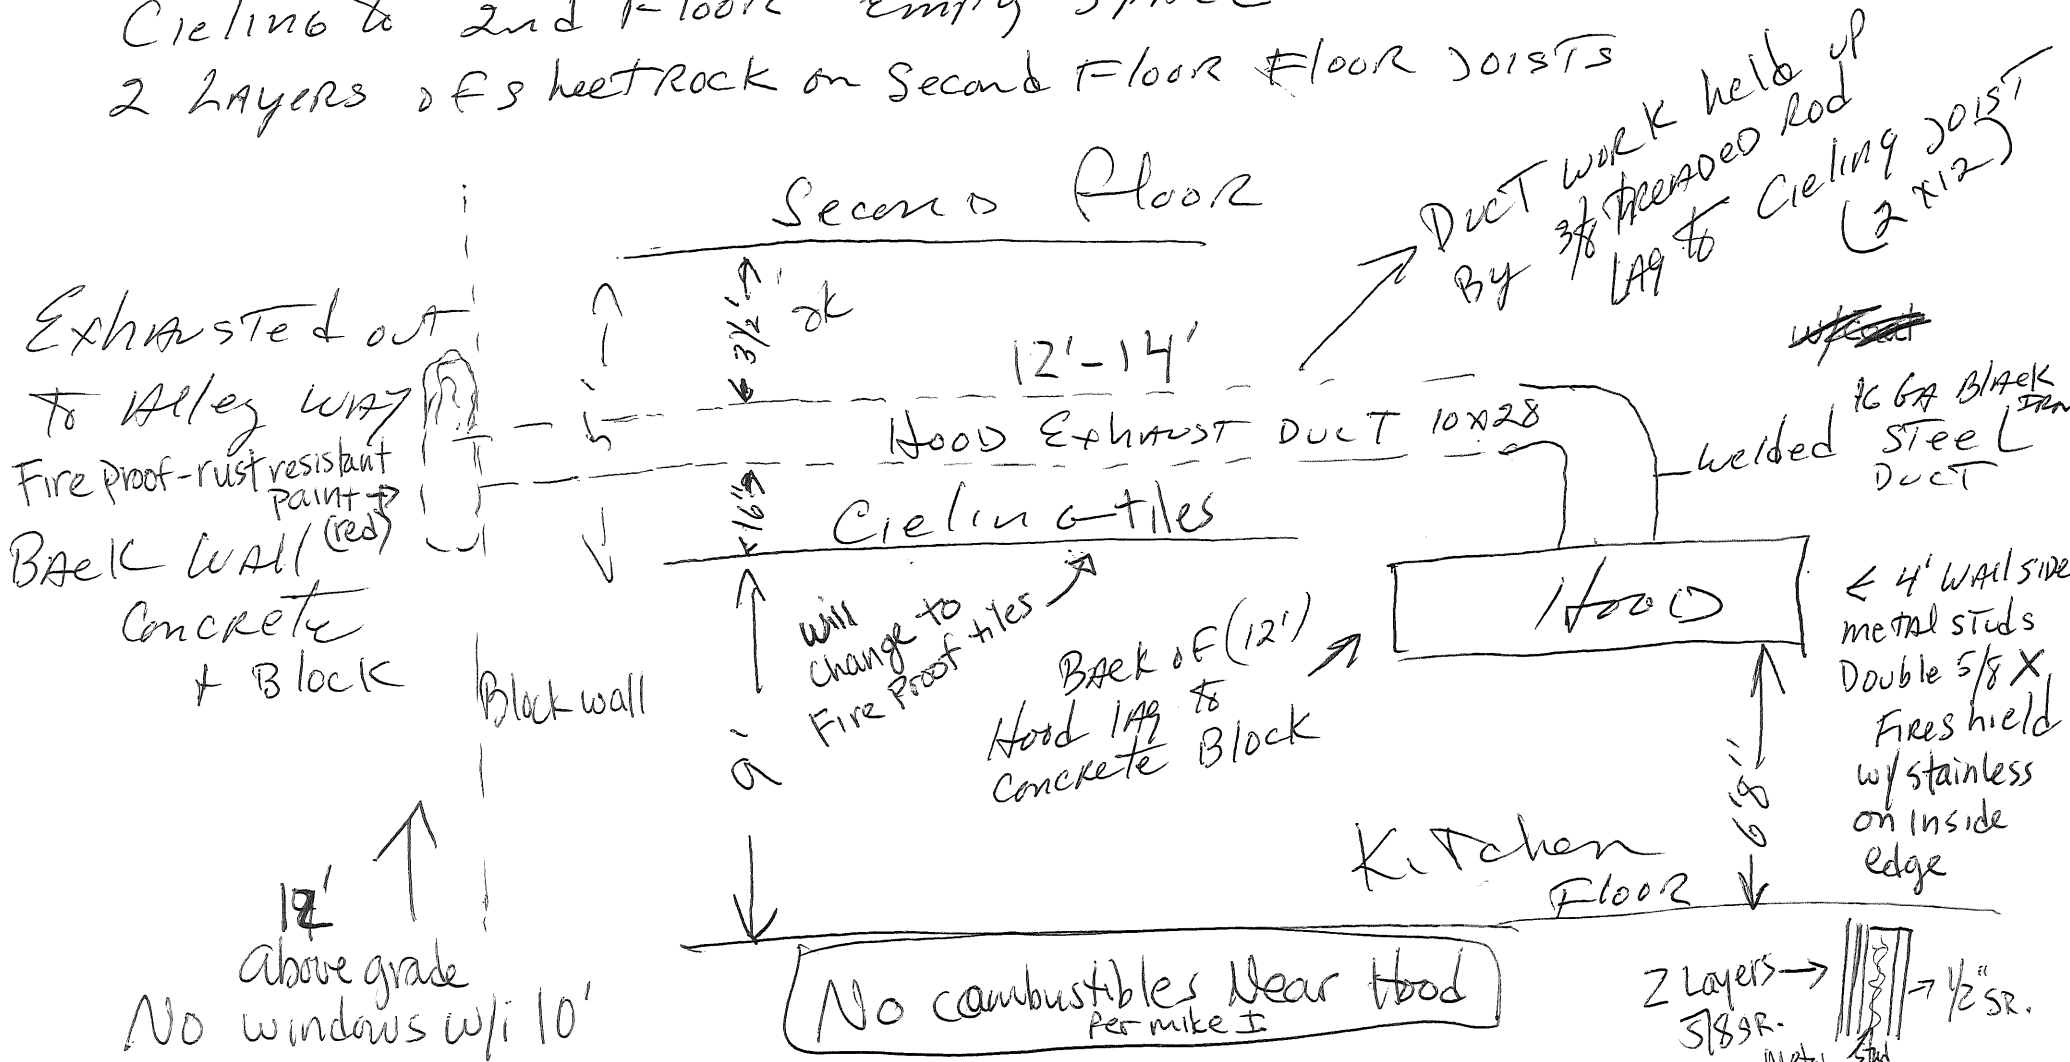 Cieling to 2nd Floor Empty Space
2 LAYERS of sheetRock on Second Floor Floor JOISTS
Second Floor
DucT work held up
By 3/8 THREADED Rod
LAg to Cieling JOIST
(2 x12)
3 1/2'
ok
Exhausted out
to Alley way
Fire proof-rust resistant
paint
(red)
BAck WAll
Concrete
+ Block
12'-14'
Hood Exhaust Duct 10x28
welded
16 GA Black
IRN
STeel
DUCT
16"
Cieling tiles
Will
change to
Fire Proof tiles
5'
Hood
BAck oF (12')
Hood lAg to
Concrete Block
Block wall
9'
< 4' WAll SIDE
metal studs
Double 5/8 X
Fireshield
w/ stainless
on inside
edge
6'8"
Kitchen
Floor
12'
above grade
No windows w/i 10'
No combustibles Near Hood
Per mike I
2 Layers
5/8 SR.
1/2" SR.
metal stud